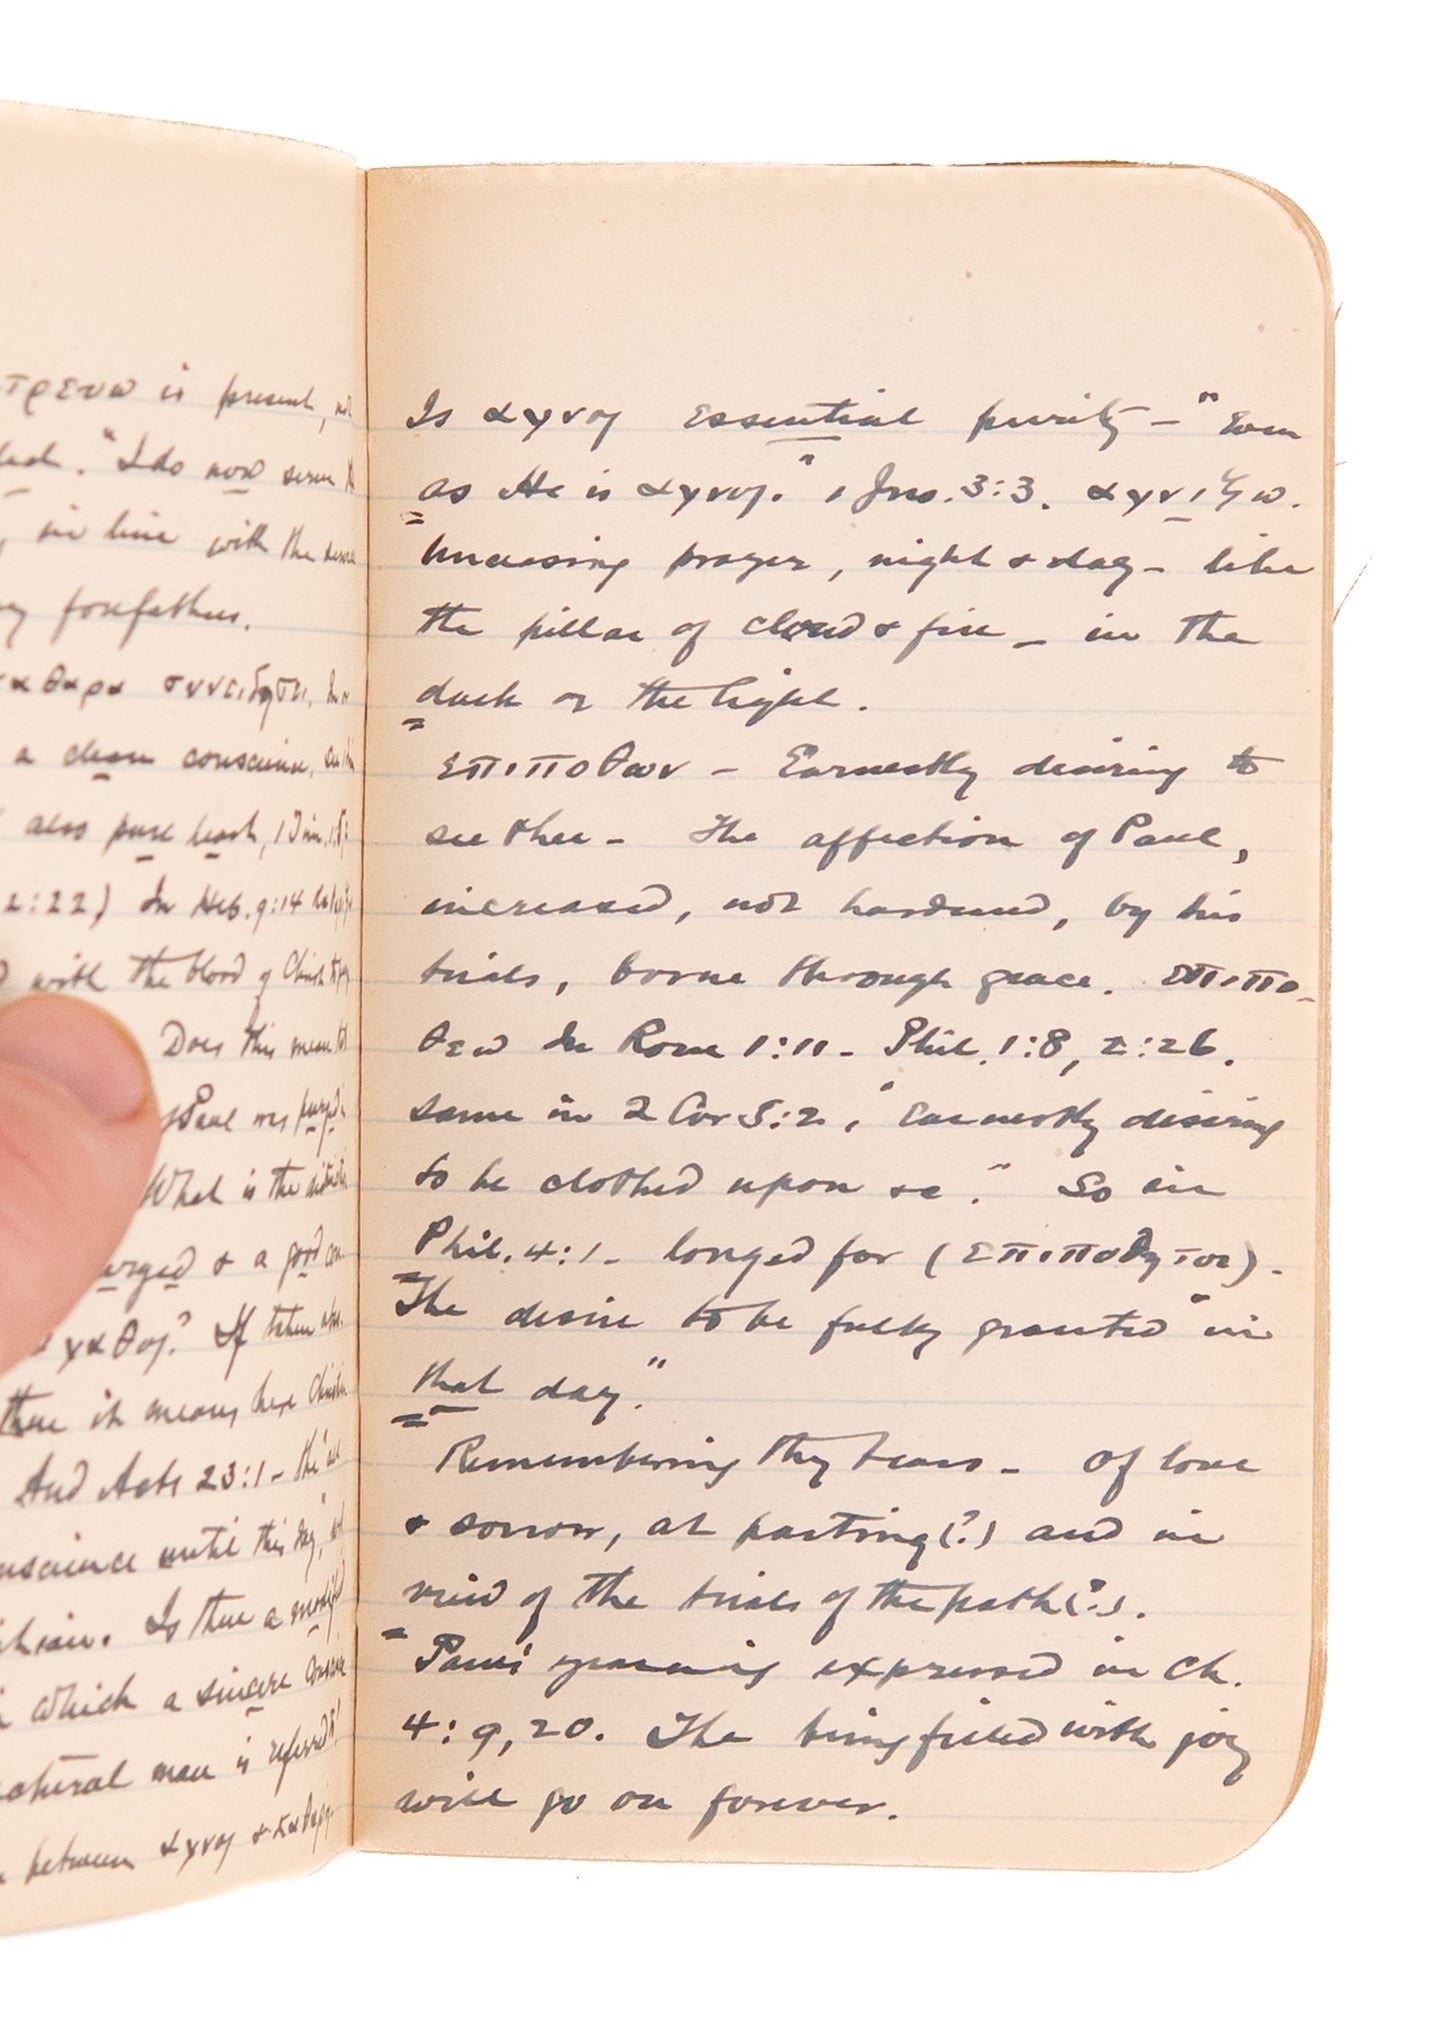 τρευω is present, not
"I do now serve
, in line with the
forefathers.
καθαρα συνειδησει. In
a clean conscience,
also pure heart, 1 Tim. 1:5;
2:22) In Heb. 9:14
with the blood of Christ
Does this mean
Paul was purged
What is the
& a good
αγαθος? If taken
there it means here
And Acts 23:1 - the
conscience until this day,"
Is there a
in which a sincere
natural man is referred to?
between αγνος &
Is αγνος essential purity - "Even
as He is αγνος." 1 Jno. 3:3. αγνιζω.
Unceasing prayer, night & day - like
the pillar of cloud & fire - in the
dark or the light.
επιποθων - Earnestly desiring to
see thee - The affection of Paul,
increased, not hardened, by his
trials, borne through grace. επιπο-
θεω In Rom 1:11 - Phil. 1:8, 2:26.
same in 2 Cor 5:2, "Earnestly desiring
to be clothed upon &c." So in
Phil. 4:1 - longed for (επιποθητοι).
The desire to be fully granted "in
that day."
Remembering thy tears - Of love
& sorrow, at parting (?) and in
view of the trials of the path (?).
Paul's yearning expressed in Ch.
4:9, 20. The being filled with joy
will go on forever.